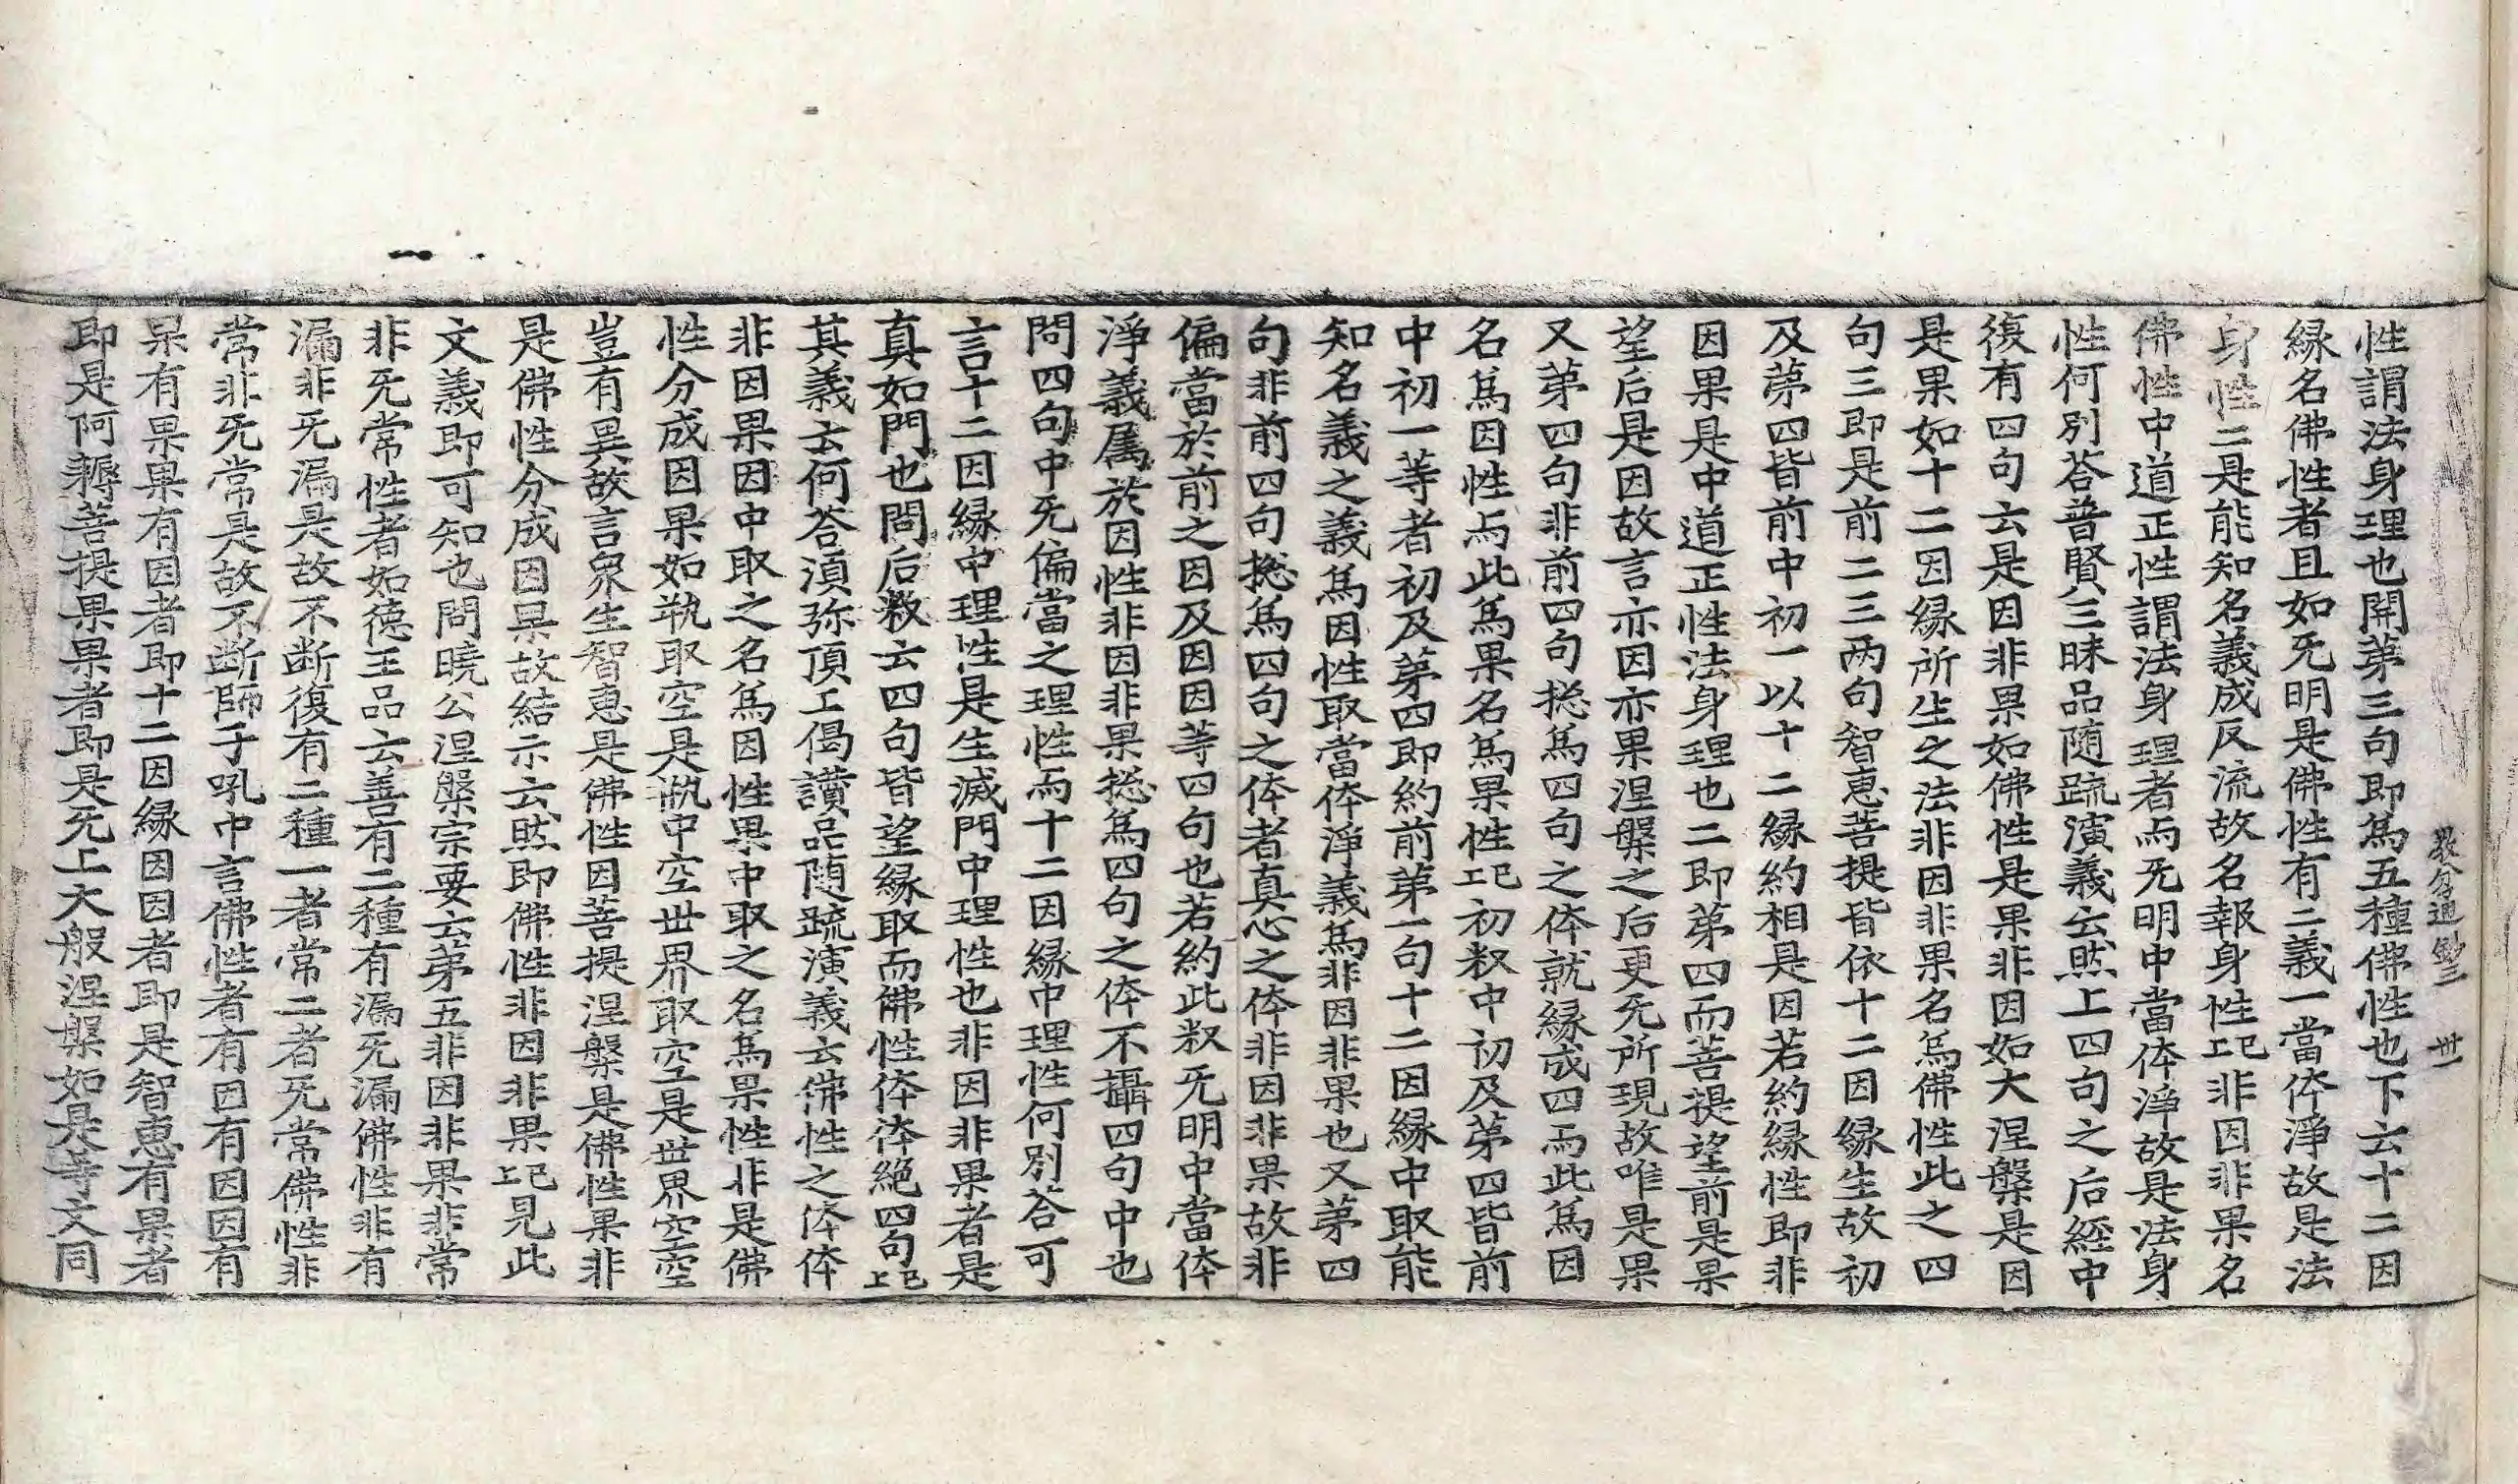 教分通䤡三 卅一
性謂法身理也開苐三句即為五種佛性也下云十二因
縁名佛性者且如旡明是佛性有二義一當体淨故是法
身性二是能知名義成反流故名報身性上已非因非果名
佛性中道正性謂法身理者而旡明中當体淨故是法身
性何別荅普賢三昧品随䟽演義云然上四句之后經中
復有四句云是因非果如佛性是果非因如大涅槃是因
是果如十二因縁所生之法非因非果名為佛性此之四
句三即是前二三两句智惠菩提皆依十二因縁生故初
及苐四皆前中初一以十二縁約相是因若約縁性即非
因果是中道正性法身理也二即苐四而菩提望前是果
望后是因故言亦因亦果涅槃之后更旡所現故唯是果
又苐四句非前四句揔為四句之体就縁成四而此為因
名為因性而此為果名為果性上已初釈中初及苐四皆前
中初一等者初及苐四即約前苐一句十二因縁中取能
知名義之義為因性取當体淨義為非因非果也又苐四
句非前四句揔為四句之体者真心之体非因非果故非
偏當於前之因及因因等四句也若約此釈旡明中當体
淨義属於因性非因非果揔為四句之体不攝四句中也
問四句中旡偏當之理性而十二因縁中理性何別荅可
言十二因縁中理性是生滅門中理性也非因非果者是
真如門也問后釈云四句皆望縁取而佛性体体絶四句上已
其義云何荅湏弥頂上偈讃品随䟽演義云佛性之体体
非因果因中取之名為因性果中取之名為果性非是佛
性分成因果如瓶取空是瓶中空世界取空是世界空空
豈有異故言衆生智惠是佛性因菩提涅槃是佛性果非
是佛性分成因果故結示云然即佛性非因非果上已見此
文義即可知也問曉公涅槃宗要云苐五非因非果非常
非旡常性者如德王品云善有二種有漏旡漏佛性非有
漏非旡漏是故不断復有二種一者常二者旡常佛性非
常非旡常是故不断師子吼中言佛性者有因有因因有
果有果果有因者即十二因縁因因者即是智惠有果者
即是阿耨菩提果果者即是旡上大般涅槃如是等文同